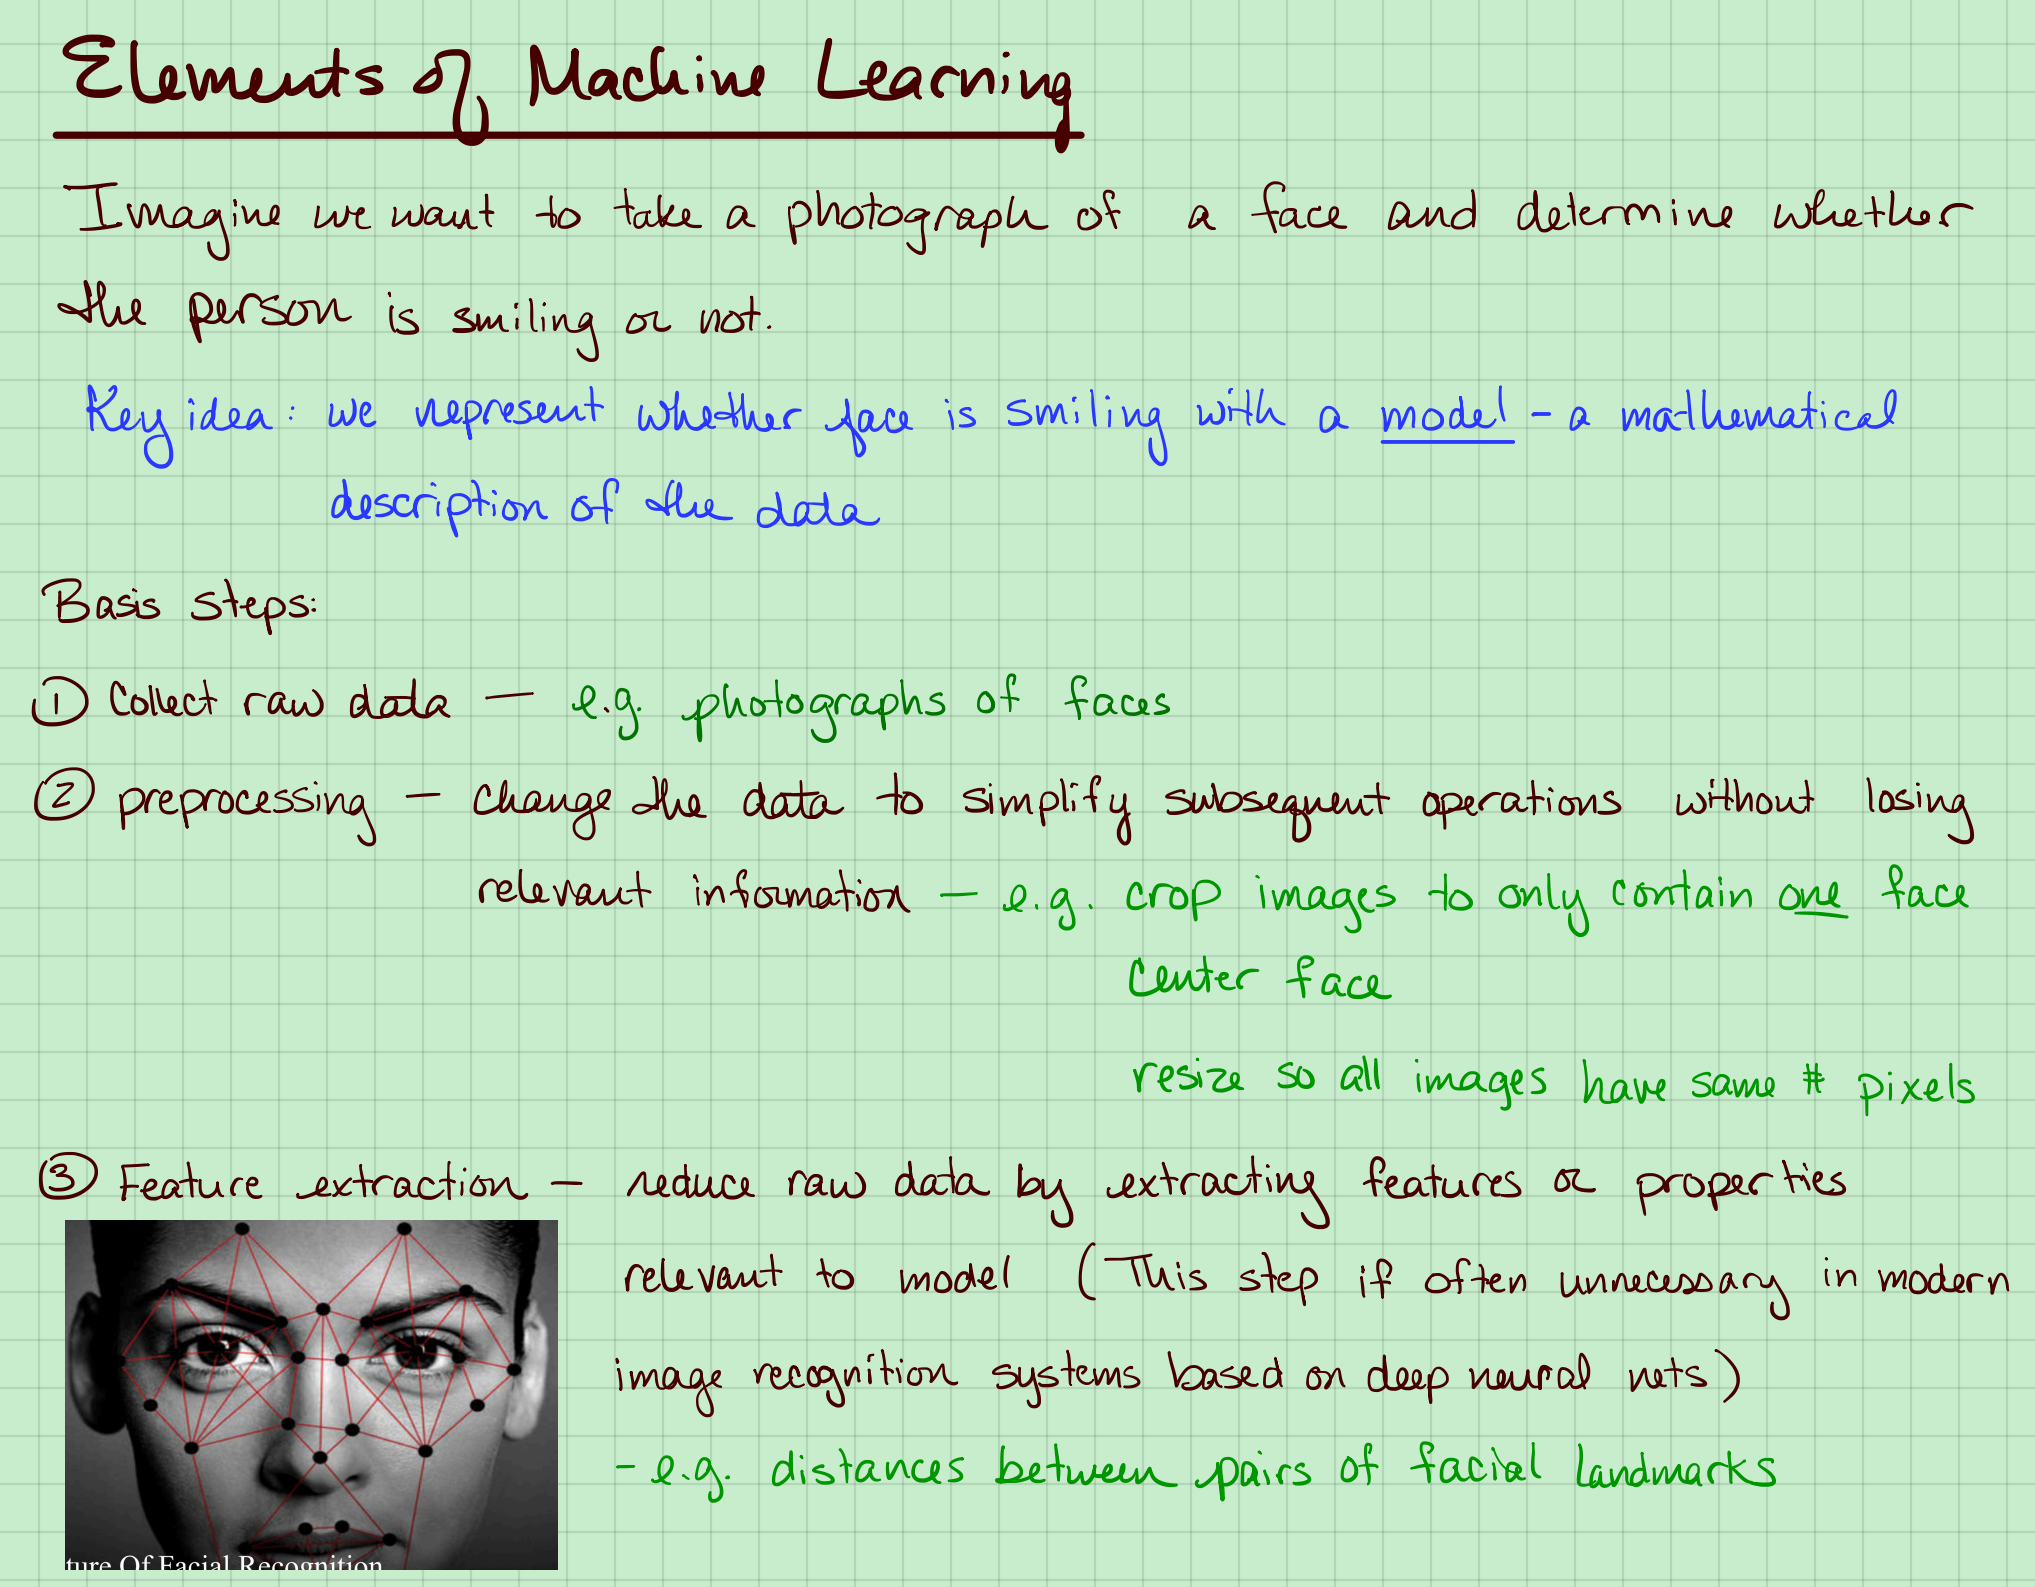 Elements of Machine Learning
Imagine we want to take a photograph of a face and determine whether
the person is smiling or not.
Key idea: we represent whether face is smiling with a model - a mathematical
description of the data
Basis steps:
① Collect raw data — e.g. photographs of faces
② preprocessing — change the data to simplify subsequent operations without losing
relevant information — e.g. crop images to only contain one face
center face
resize so all images have same # pixels
③ Feature extraction — reduce raw data by extracting features or properties
relevant to model (This step if often unnecessary in modern
image recognition systems based on deep neural nets)
- e.g. distances between pairs of facial landmarks
ture Of Facial Recognition